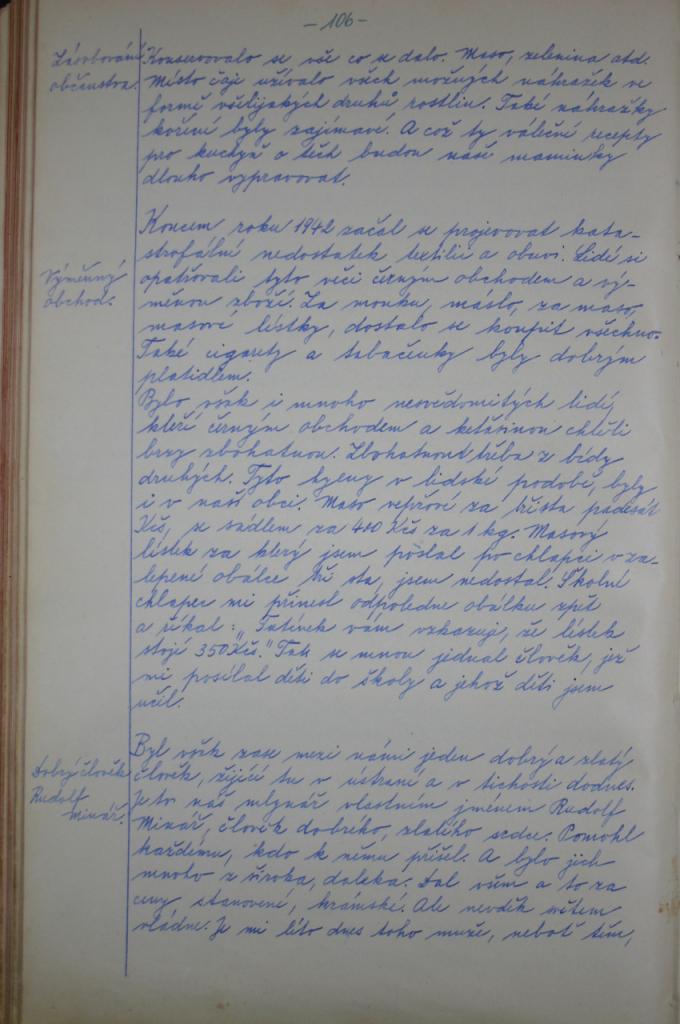 - 106 -
Zásobování
občanstva.
Konservovalo se vše co se dalo. Maso, zelenina atd.
Místo čaje užívalo všech možných náhražek ve
formě všelijakých druhů rostlin. Také náhražky
koření byly zajímavé. A což ty válečné recepty
pro kuchyň o těch budou naše maminky
dlouho vypravovat.
Koncem roku 1942 začal se projevovat kata-
strofální nedostatek textilií a obuvi. Lidé si
Výměnný
obchod.
opatřovali tyto věci černým obchodem a vý-
měnou zboží. Za mouku, máslo, za maso,
masové lístky, dostalo se koupit všechno.
Také cigarety a tabačenky byly dobrým
platidlem.
Bylo však i mnoho nesvědomitých lidí,
kteří černým obchodem a keťasinou chtěli
brzy zbohatnou. Zbohatnout třeba z bídy
druhých. Tyto hyeny v lidské podobě, byly
i v naší obci. Maso vepřové za třista padesát
Kčs, se sádlem za 400 Kčs za 1 kg. Masový
lístek za který jsem poslal po chlapci v za-
lepené obálce tři sta, jsem nedostal. Školní
chlapec mi přinesl odpoledne obálku zpět
a říkal: „Tatínek vám vzkazuje, že lístek
stojí 350 Kčs." Tak se mnou jednal člověk, jež
mi posílal děti do školy a jehož děti jsem
učil.
Dobrý člověk
Rudolf
Minář.
Byl však zase mezi námi jeden dobrý a zlatý
člověk, žijící tu v ústraní a v tichosti dodnes.
Je to náš mlynář vlastním jménem Rudolf
Minář, člověk dobrého, zlatého srdce. Pomohl
každému, kdo k němu přišel. A bylo jich
mnoho z široka, daleka. Dal všem a to za
ceny stanovené, krámské. Ale nevděk světem
vládne. Je mi líto dnes toho muže, neboť těm,